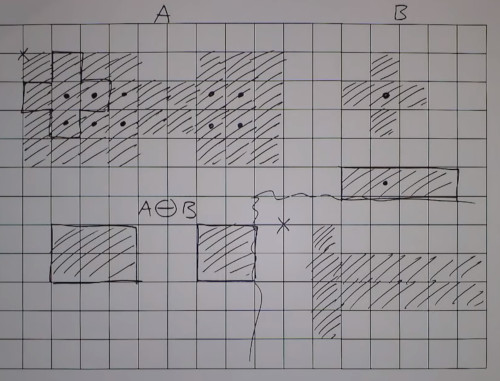 A B
A ⊖ B